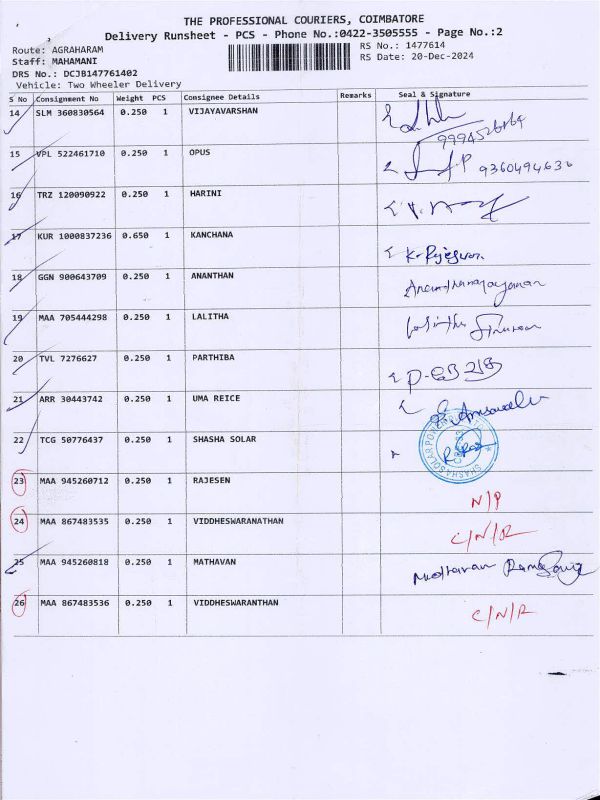 THE PROFESSIONAL COURIERS, COIMBATORE
Delivery Runsheet - PCS - Phone No.:0422-3505555 - Page No.:2
Route: AGRAHARAM
RS No.: 1477614
Staff: MAHAMANI
RS Date: 20-Dec-2024
DRS No.: DCJB147761402
Vehicle: Two Wheeler Delivery
S No Consignment No Weight PCS Consignee Details Remarks Seal & Signature
14 SLM 360830564 0.250 1 VIJAYAVARSHAN
15 VPL 522461710 0.250 1 OPUS 9360494636
16 TRZ 120090922 0.250 1 HARINI
17 KUR 1000837236 0.650 1 KANCHANA
18 GGN 900643709 0.250 1 ANANTHAN
19 MAA 705444298 0.250 1 LALITHA
20 TVL 7276627 0.250 1 PARTHIBA
21 ARR 30443742 0.250 1 UMA REICE
22 TCG 50776437 0.250 1 SHASHA SOLAR
23 MAA 945260712 0.250 1 RAJESEN N/P
24 MAA 867483535 0.250 1 VIDDHESWARANATHAN C/N/R
25 MAA 945260818 0.250 1 MATHAVAN Madhavan
26 MAA 867483536 0.250 1 VIDDHESWARANTHAN C/N/R